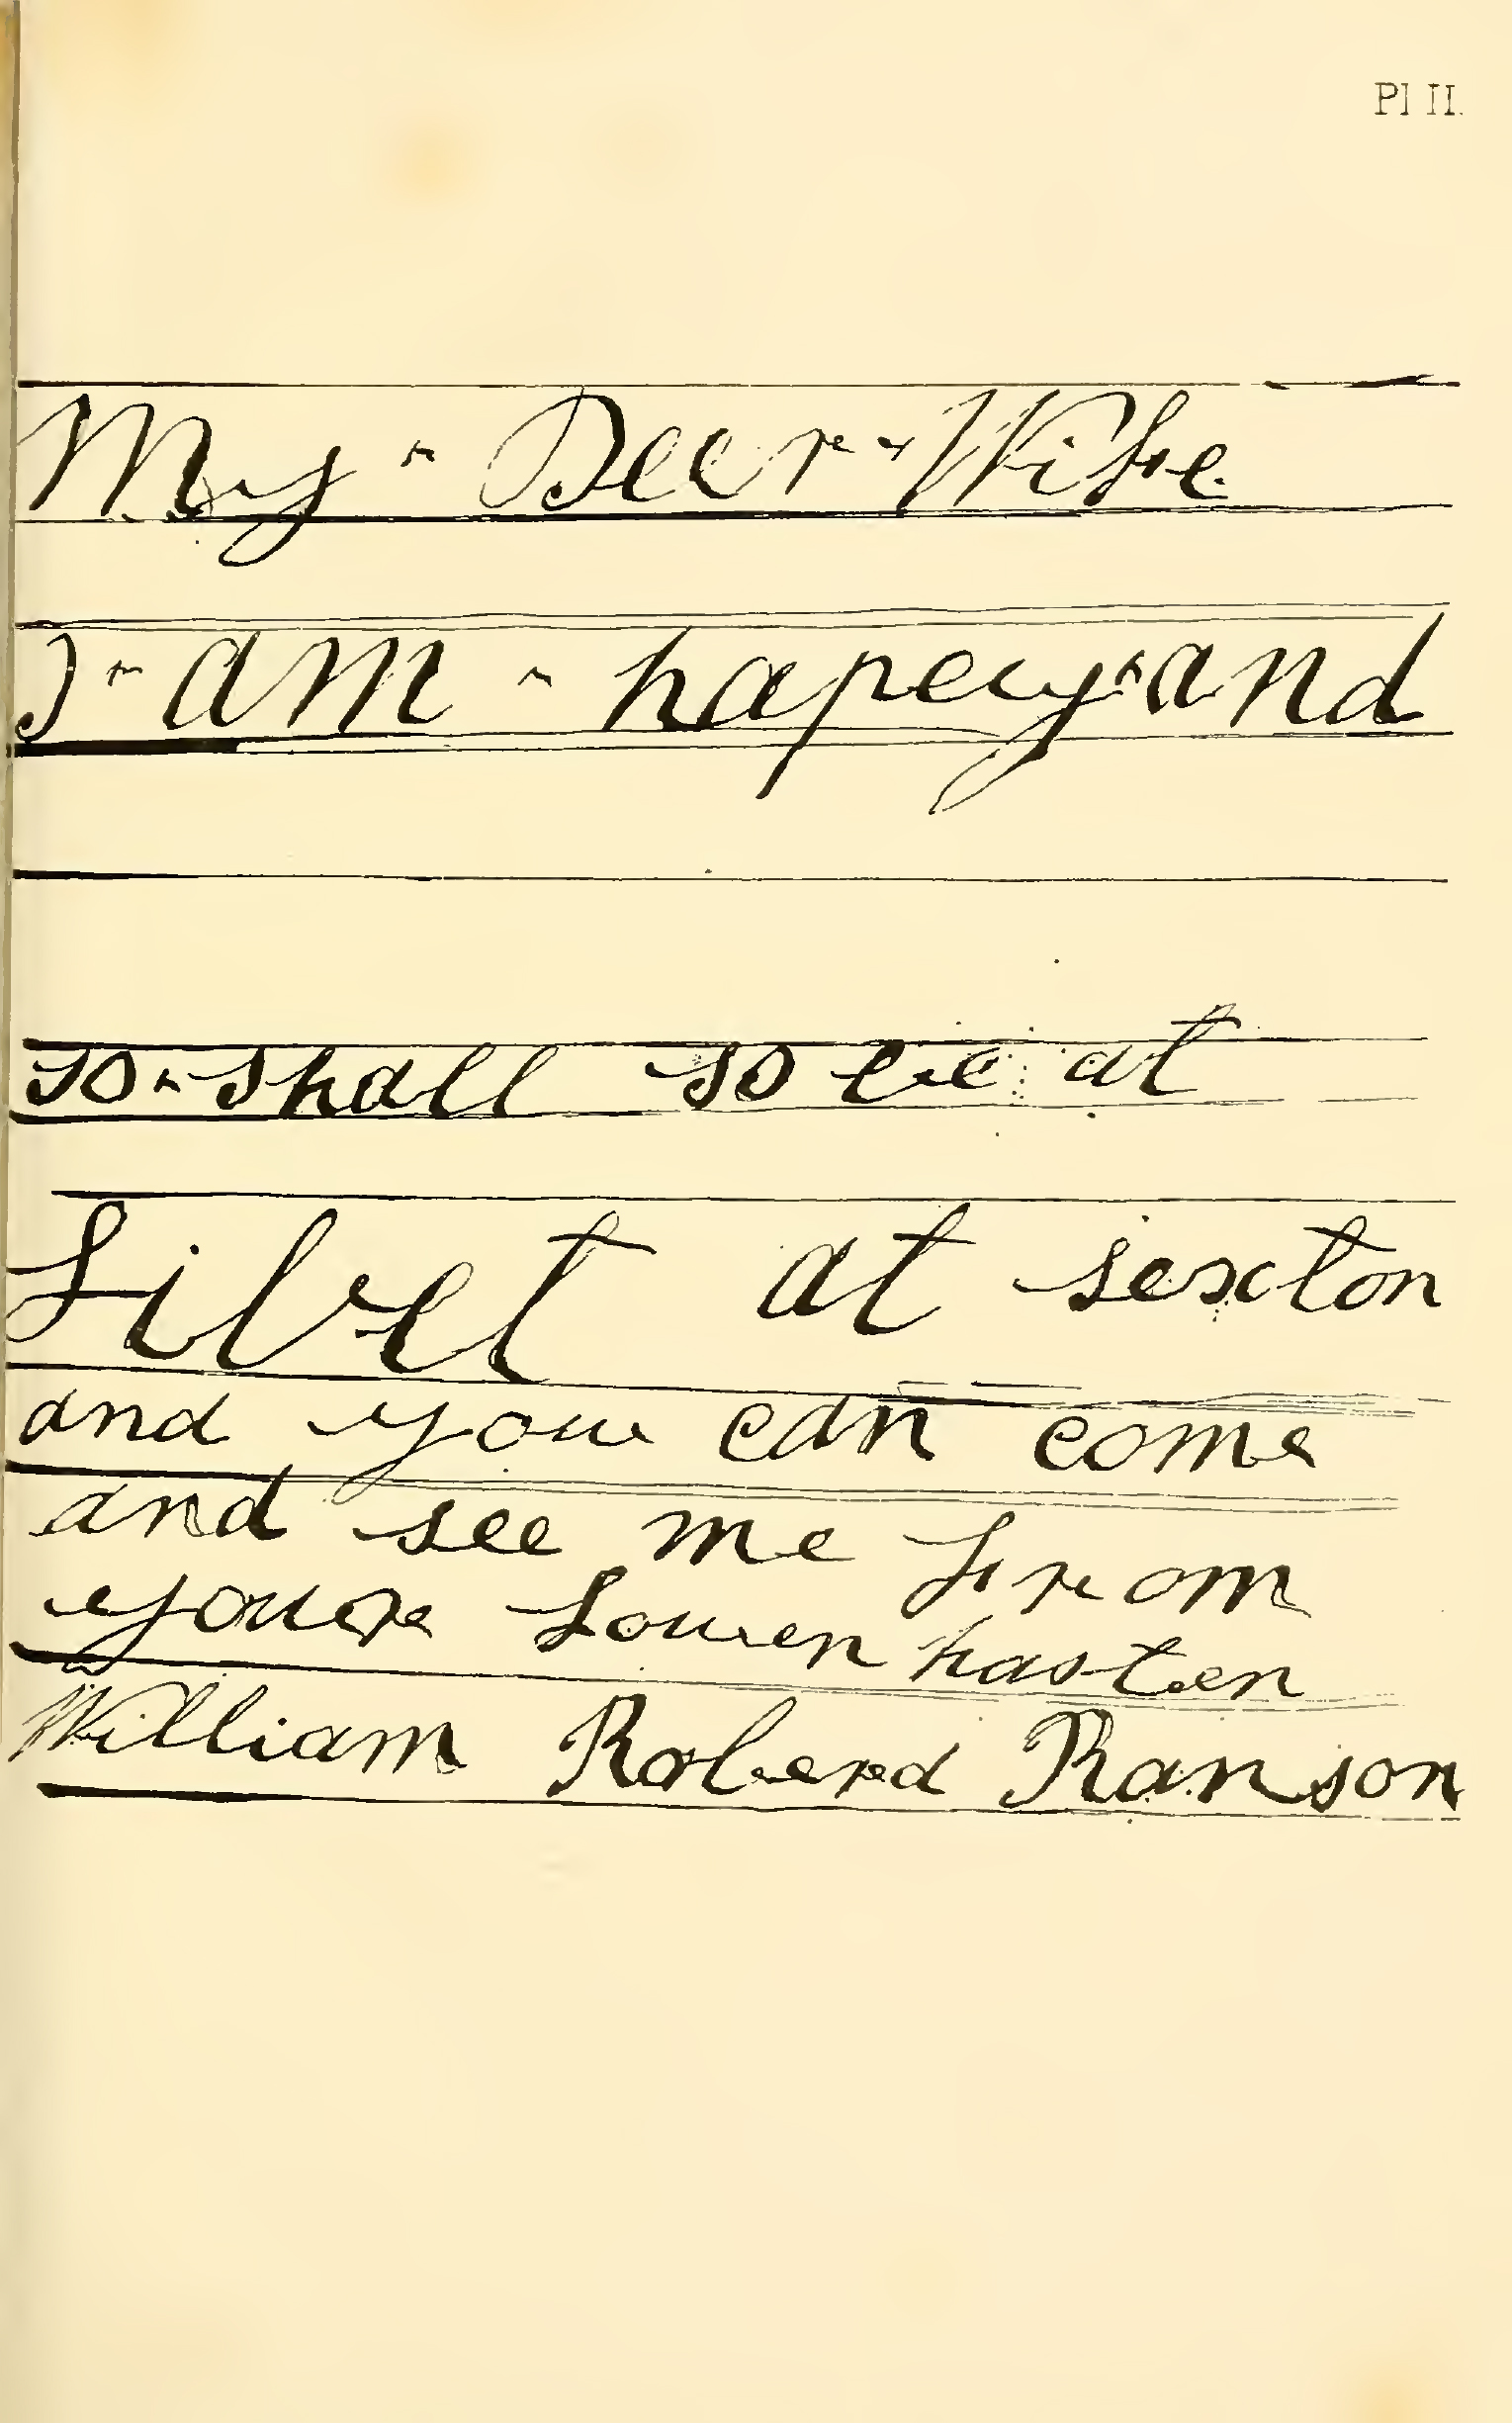 Pl II.
My - Deer - Wife
I - am - hapey - and
so - shall so ee at
Livet at sexton
and you can come
and see me from
youre Louen hasten
William Roberd Ranson